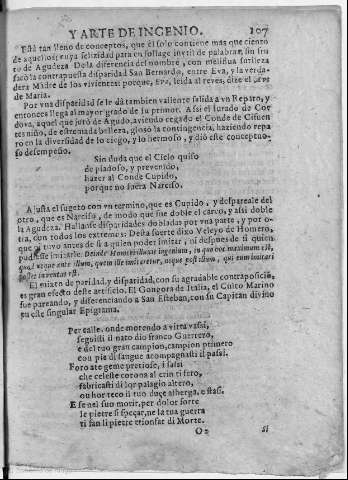 Y ARTE DE INGENIO. 107
Està tan lleno de conceptos, que èl solo contiene mas que ciento
de aquellos; cuya felizidad para en follage inutil de palabras, sin fru
to de Agudeza. De la diferencia del nombre, con meliflua sutileza
sacò la contrapuesta disparidad San Bernardo, entre Eva, y la verda-
dera Madre de los vivientes; porque, Eva, leida al reves, dize el Ave
de Maria.
Por vna disparidad se le dà tambien valiente salida a vn Reparo, y
entonces llega al mayor grado de su primor. Assi el Jurado de Cor
dova, aquel que juró de Agudo, aviendo cegado el Conde de Cifuen
tes niño, de estremada belleza, glosò la contingencia, haziendo repa
ro en la diversidad de lo ciego, y lo hermoso, y diò este conceptuo-
so desempeño.
Sin duda que el Cielo quiso
de piadoso, y prevenido,
hazer al Conde Cupido,
porque no fuera Narciso.
Ajusta el sugeto con vn termino, que es Cupido, y despareale del
otro, que es Narciso, de modo que sue doble el careo, y assi doble
la Agudeza. Hallanse disparidades dobladas por vna parte, y por o-
tra, con todos los extremos: Desta suerte dixo Veleyo de Homero,
que ni tuvo antes de sì a quien poder imitar, ni despues de ti quien
pudiesse imitarle. Deinde Homeri illuxit ingenium, in quo hoc maximum est,
quod neque ante illum, quem ille imitaretur, neque post illum, qui eum imitari
posset inventus est.
El mixto de paridad, y disparidad, con su agradable contraposicio,
es gran efecto deste artificio. El Gongora de Italia, el Culto Marino
fue pareando, y diferenciando a San Estefano, con su Capitan divino
en este singular Epigrama.
Per calle, onde morendo a vita vassi,
seguisti il nato dio franco Guerrero,
e del tuo gran campion, campion primero
con pie di sangue acompagnasti il passi.
Foro ate geme pretiose, i sassi
che celeste corona al crin ti fero,
fabricasti di lor palagio altero,
ou hor teco il tuo duce alberga, e stassi.
E se nel suo morir, per dolor forte
le pietre si speçar, ne la tua guerra
ti fan li pietre trionfar di Morte.
O2 Si